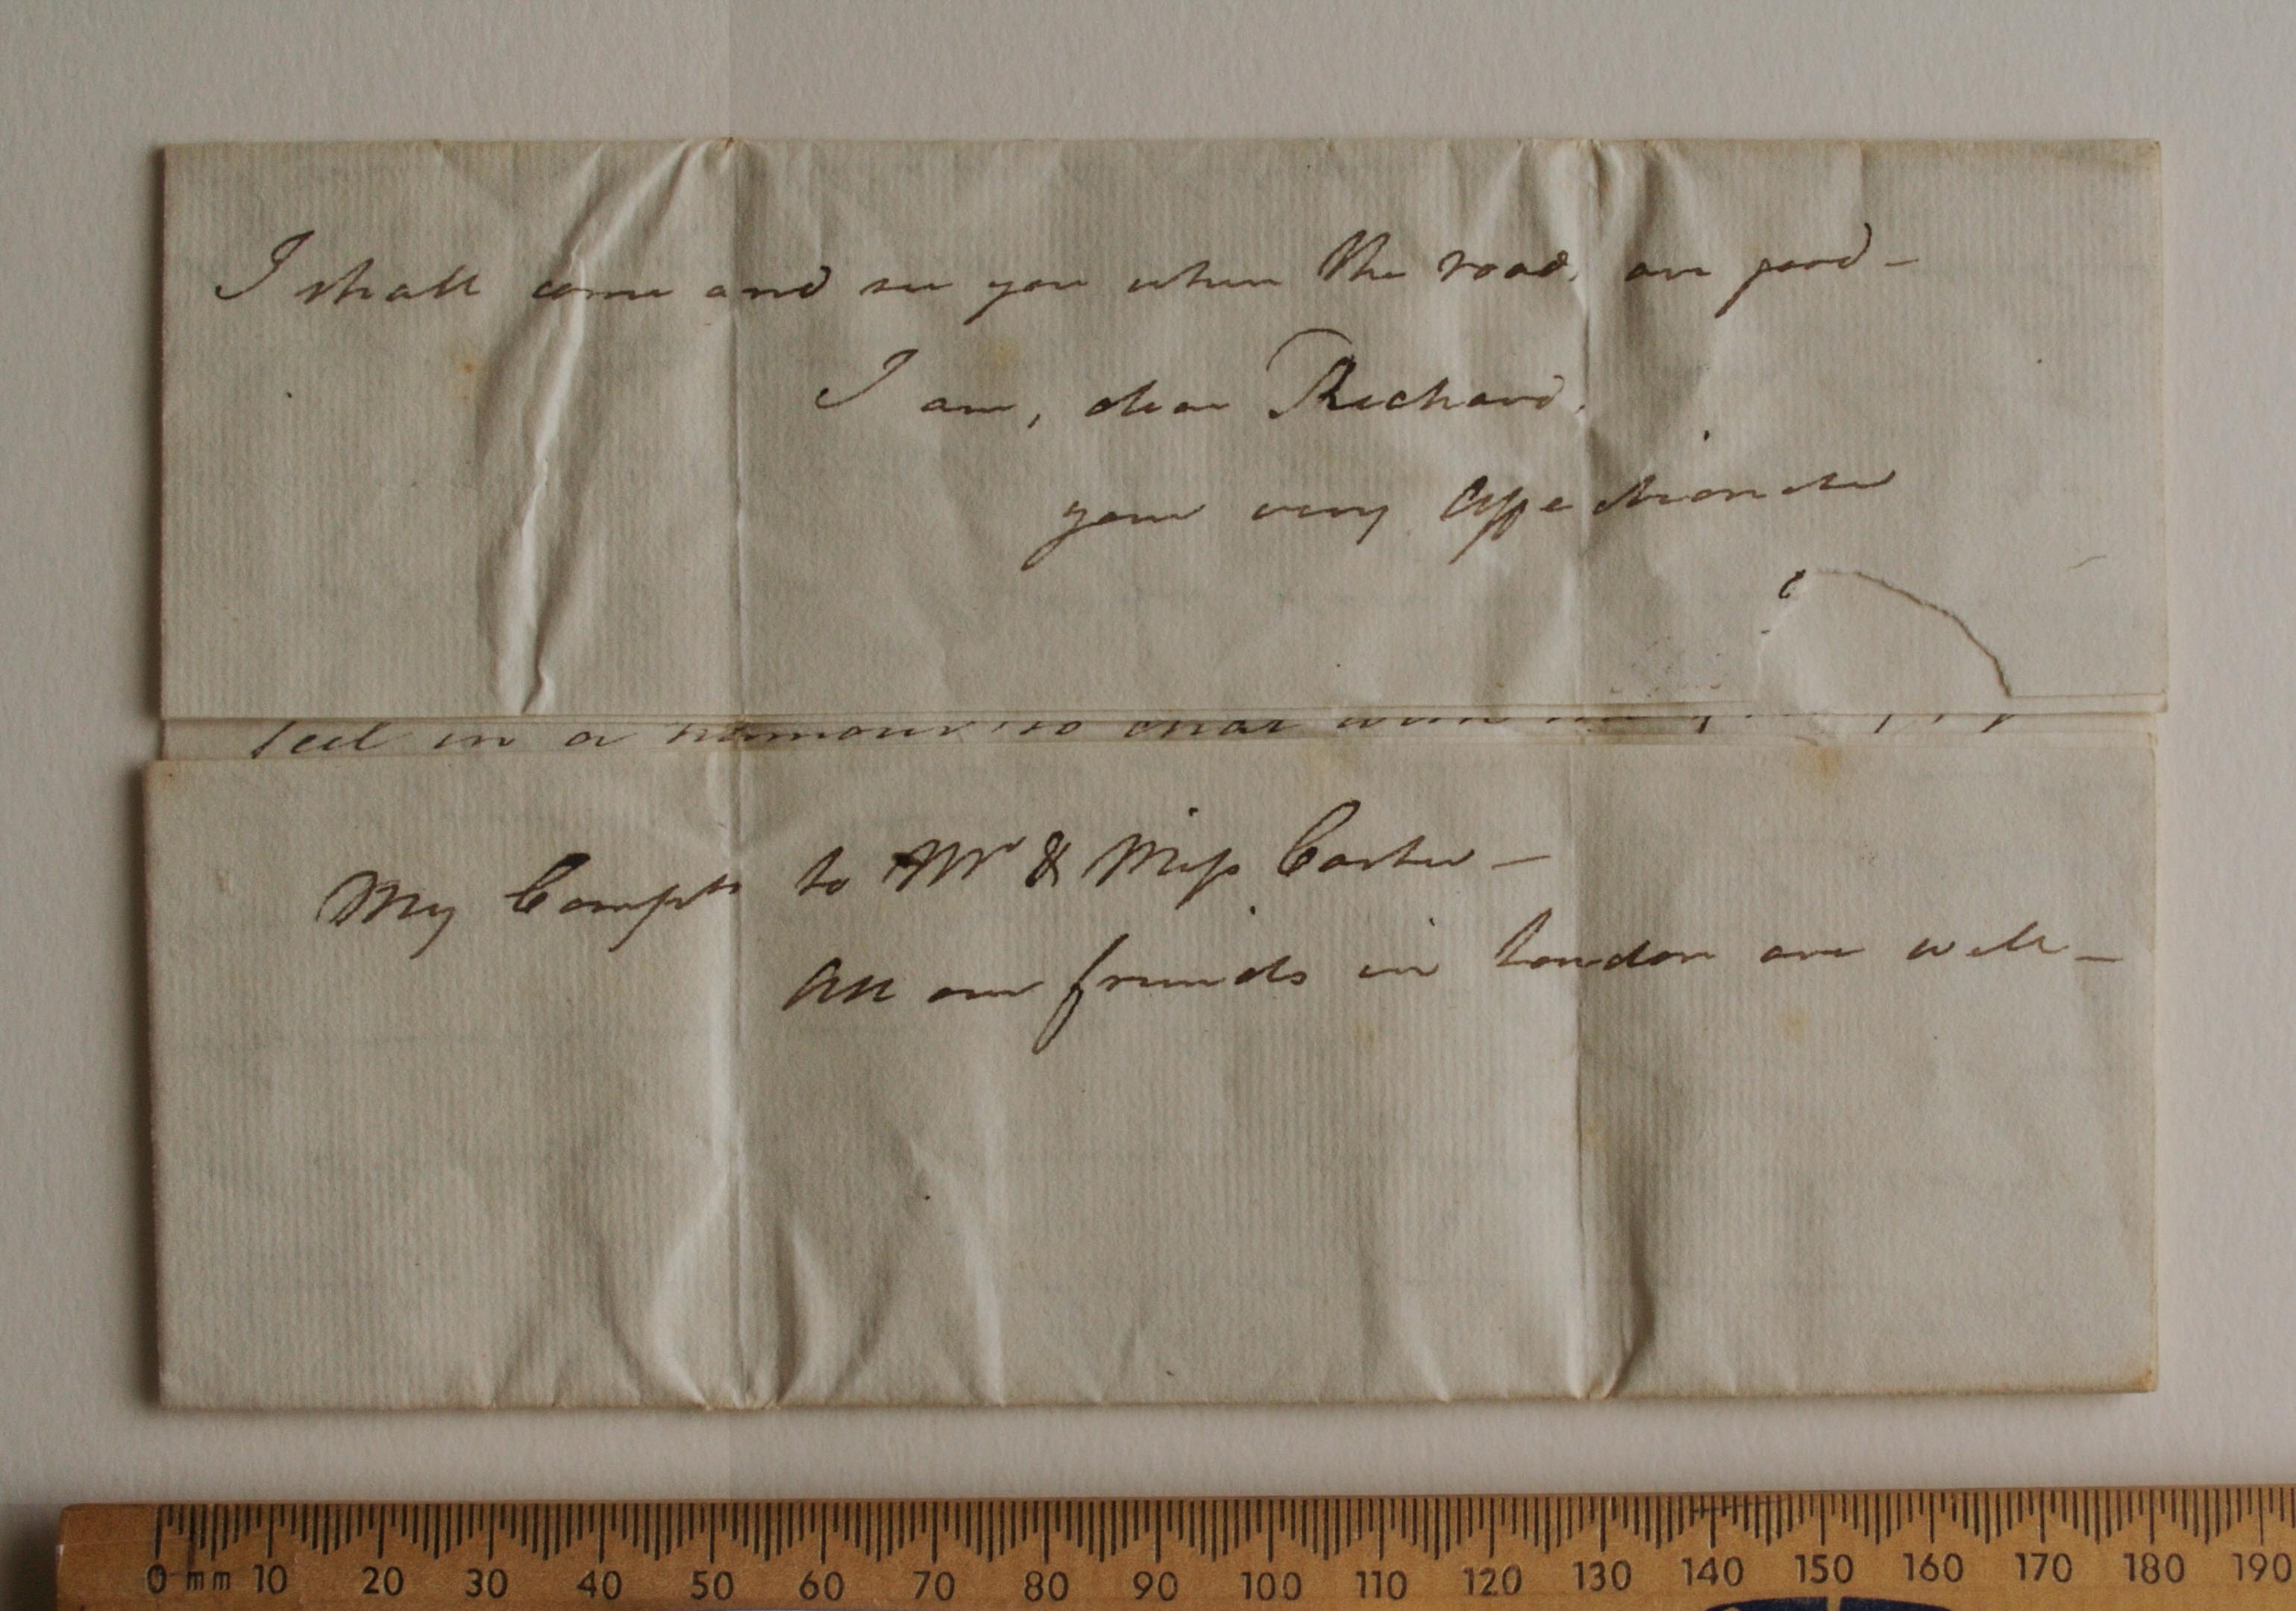 I shall come and see you when the roads are good –
I am, dear Richard,
your very affectionate
feel in a humour to chat with
My Compts to Mr & Miss Carter –
All our friends in London are well –
0 mm 10 20 30 40 50 60 70 80 90 100 110 120 130 140 150 160 170 180 190